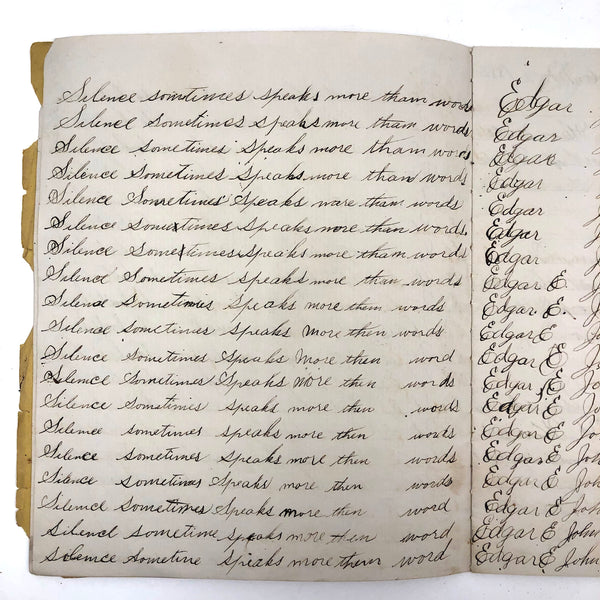 Silence sometimes speaks more than words
Silence Sometimes speaks more than words
Silence sometimes speaks more than words
Silence Sometimes Speaks more than words
Silence Sometimes Speaks more than words
Silence sometimes speaks more then words
Silence sometimes speaks more than words
Silence Sometimes speaks more than words
Silence Sometimes Speaks more then words
Silence sometimes speaks more then words
Silence sometimes Speaks more then word
Silence Sometimes Speaks more then words
Silence Sometimes speaks more then words
Silence sometimes speaks more then words
Silence sometimes Speaks more then words
Silence Sometimes Speaks more then words
Silence Sometimes Speaks more then word
Silence sometime speaks more then word
Silence Sometime speaks more them word
Edgar
Edgar
Edgar
Edgar
Edgar
Edgar
Edgar
Edgar E.
Edgar E.
Edgar E
Edgar E
Edgar E
Edgar E
Edgar E
Edgar E
Edgar E
Edgar E
Edgar E John
Edgar E John